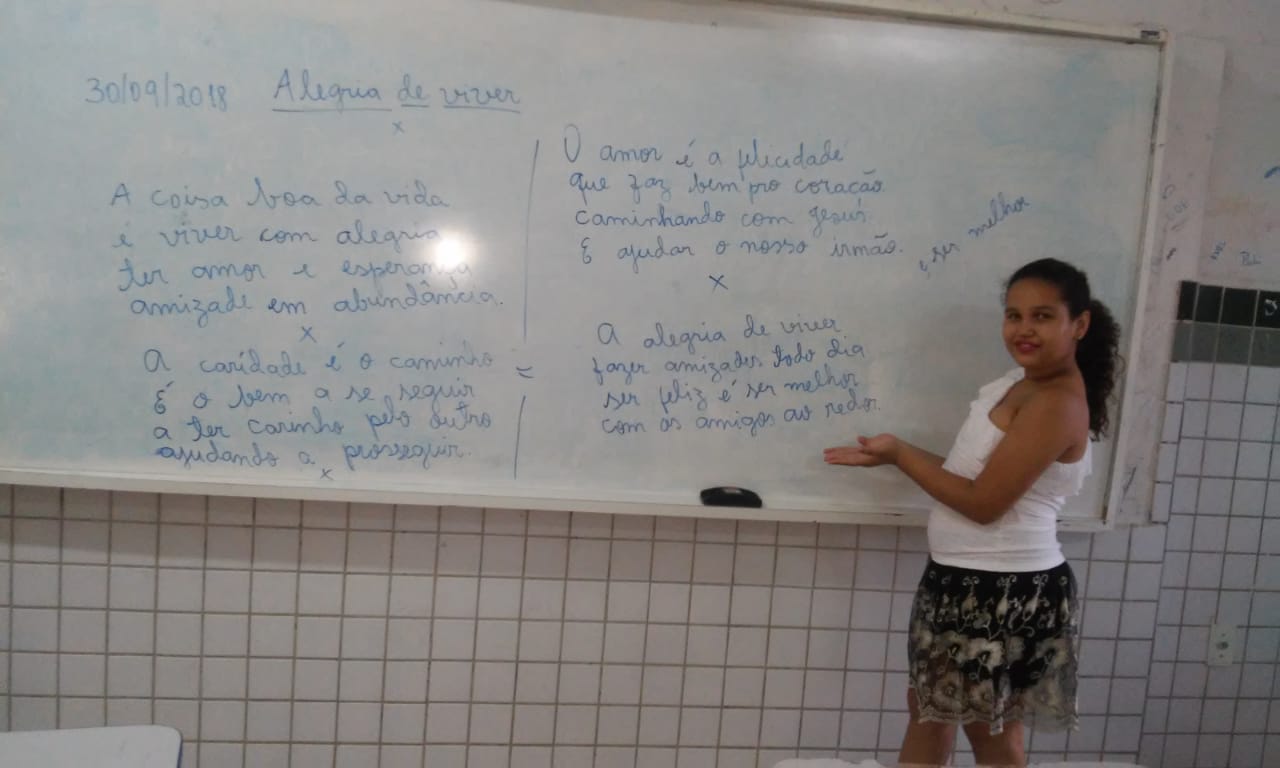 30/09/2018 Alegria de viver
x
A coisa boa da vida
é viver com alegria
ter amor e esperança
amizade em abundância.
x
A caridade é o caminho
É o bem a se seguir
a ter carinho pelo outro
ajudando a prosseguir.
x
=
O amor é a felicidade
que faz bem pro coração
caminhando com Jesus
E ajudar o nosso irmão.
x
A alegria de viver
fazer amizades todo dia
ser feliz é ser melhor
com os amigos ao redor.
é ser melhor